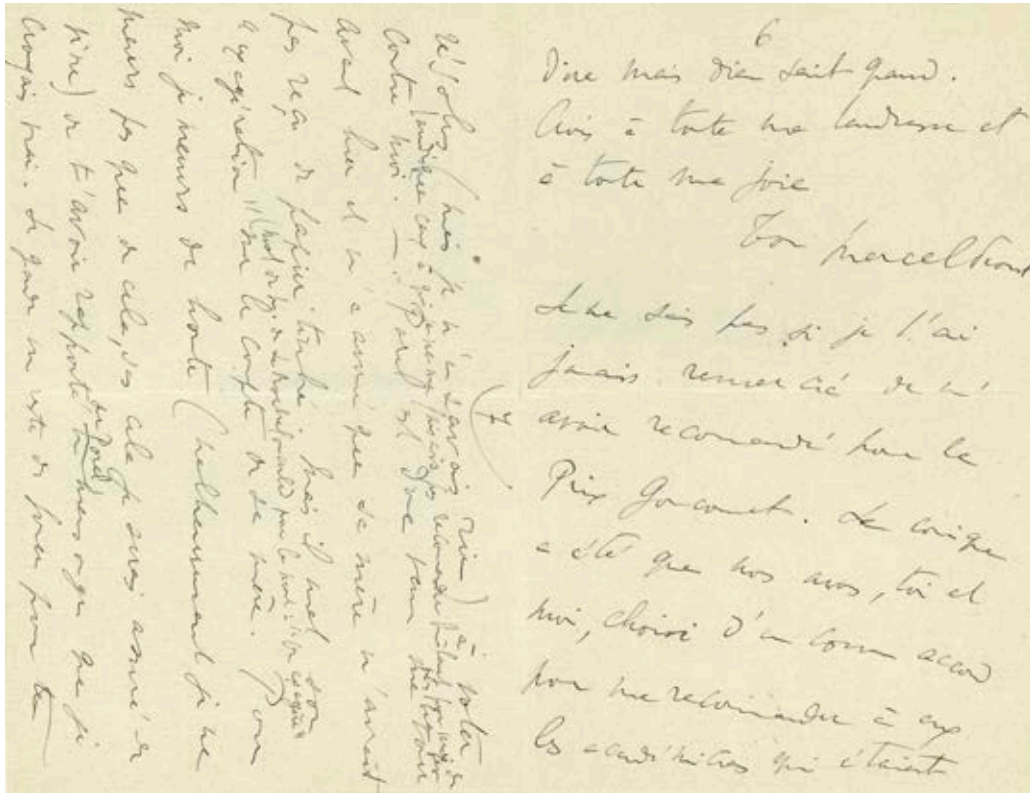 6
Dire mais Dieu sait quand.
Crois à toute ma tendresse et
à toute ma joie
Ton Marcel Proust
Je ne sais pas si je t'ai
jamais remercié de m'
avoir recommandé pour le
Prix Goncourt. Le comique
a été que nos avons, toi et
moi, choisi d'un commun accord
pour me recommander à eux
les académiciens qui étaient
7
résolus (mais je n'en savais rien) à voter
contre moi. — est donc venu me
avant hier et m'a assuré que sa mère n'avait
pas reçu de papier timbré mais il met son
exagération sur le compte de sa mère. Pour
moi je meurs de honte (malheureusement je ne
meurs pas que de cela, je suis assuré de
de t'avoir rapporté mensonge que je
croyais vrai. Je garde un reste de forces pour te